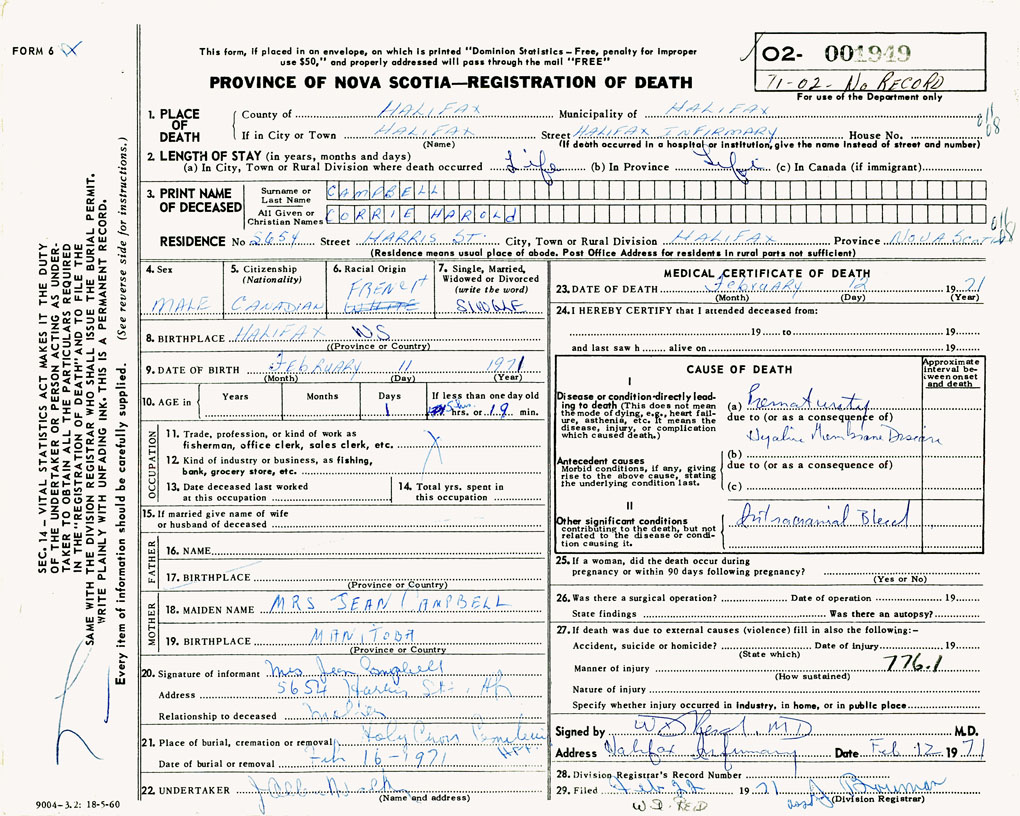 FORM 6
This form, if placed in an envelope, on which is printed "Dominion Statistics – Free, penalty for improper
use $50," and properly addressed will pass through the mail "FREE"
PROVINCE OF NOVA SCOTIA—REGISTRATION OF DEATH
02- 001949
71-02- No RECORD
For use of the Department only
1. PLACE OF DEATH
County of HALIFAX Municipality of HALIFAX
If in City or Town HALIFAX Street HALIFAX INFIRMARY House No.
(Name) (If death occurred in a hospital or institution, give the name instead of street and number)
2. LENGTH OF STAY (in years, months and days)
(a) In City, Town or Rural Division where death occurred Life (b) In Province Life (c) In Canada (if immigrant)
3. PRINT NAME OF DECEASED
Surname or Last Name CAMPBELL
All Given or Christian Names CORRIE HAROLd
RESIDENCE No 5654 Street HARRIS ST. City, Town or Rural Division HALIFAX Province NOVA Scotia
(Residence means usual place of abode. Post Office Address for residents in rural parts not sufficient)
4. Sex
MALE
5. Citizenship (Nationality)
CANADIAN
6. Racial Origin
FRENCH
WHITE
7. Single, Married, Widowed or Divorced (write the word)
SINGLE
8. BIRTHPLACE HALIFAX NS
((Province or Country)
9. DATE OF BIRTH February 11 1971
(Month) (Day) (Year)
10. AGE in Years Months Days If less than one day old
1 hrs. or 19 min.
OCCUPATION
11. Trade, profession, or kind of work as
fisherman, office clerk, sales clerk, etc.
12. Kind of industry or business, as fishing,
bank, grocery store, etc.
13. Date deceased last worked
at this occupation
14. Total yrs. spent in
this occupation
15. If married give name of wife
or husband of deceased
FATHER
16. NAME
17. BIRTHPLACE
(Province or Country)
MOTHER
18. MAIDEN NAME MRS JEAN CAMPBELL
19. BIRTHPLACE MANITOBA
(Province or Country
20. Signature of informant Mrs Jean Campbell
Address 5654 Harris St., Hfx
Relationship to deceased Mother
21. Place of burial, cremation or removal Holy Cross Cemetery
HFX
Date of burial or removal Feb 16-1971
22. UNDERTAKER
(Name and address)
MEDICAL CERTIFICATE OF DEATH
23. DATE OF DEATH February 12 1971
(Month) (Day) (Year)
24. I HEREBY CERTIFY that I attended deceased from:
19 to 19
and last saw h alive on 19
CAUSE OF DEATH
Approximate interval between onset and death
I
Disease or condition directly lead-
ing to death (This does not mean
the mode of dying, e.g., heart fail-
ure, asthenia, etc. It means the
disease, injury, or complication
which caused death.)
(a) Prematurity
due to (or as a consequence of)
Hyaline Membrane Disease
Antecedent causes
Morbid conditions, if any, giving
rise to the above cause, stating
the underlying condition last.
(b)
due to (or as a consequence of)
(c)
II
Other significant conditions
contributing to the death, but not
related to the disease or condi-
tion causing it.
Intracranial Bleed
25. If a woman, did the death occur during
pregnancy or within 90 days following pregnancy?
(Yes or No)
26. Was there a surgical operation? Date of operation 19
State findings Was there an autopsy?
27. If death was due to external causes (violence) fill in also the following:–
Accident, suicide or homicide? Date of injury 19
(State which)
Manner of injury 776.1
(How sustained)
Nature of injury
Specify whether injury occurred in industry, in home, or in public place
Signed by M.D. M.D.
Address Halifax Infirmary Date Feb 12 1971
28. Division Registrar's Record Number
29. Filed Feb 22 1971
(Division Registrar)
W.D. REID
SEC. 14 – VITAL STATISTICS ACT MAKES IT THE DUTY
OF THE UNDERTAKER OR PERSON ACTING AS UNDER-
TAKER TO OBTAIN ALL THE PARTICULARS REQUIRED
IN THE "REGISTRATION OF DEATH" AND TO FILE THE
SAME WITH THE DIVISION REGISTRAR WHO SHALL ISSUE THE BURIAL PERMIT.
WRITE PLAINLY WITH UNFADING INK. THIS IS A PERMANENT RECORD.
Every item of information should be carefully supplied. (See reverse side for instructions.)
9004-3.2: 18-5-60